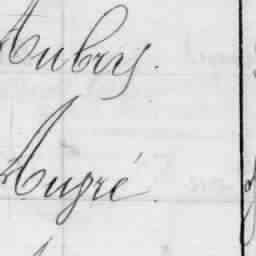 Aubry.
Augré.